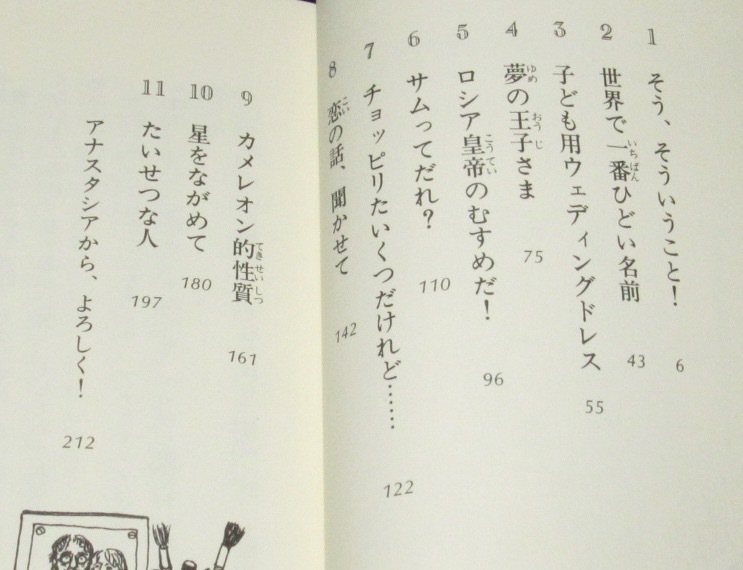 1 そう、そういうこと! 6
2 世界で一番ひどい名前 43
3 子ども用ウェディングドレス 55
4 夢の王子さま 75
5 ロシア皇帝のむすめだ! 96
6 サムってだれ? 110
7 チョッピリたいくつだけれど…… 122
8 恋の話、聞かせて 142
9 カメレオン的性質 161
10 星をながめて 180
11 たいせつな人 197
アナスタシアから、よろしく! 212